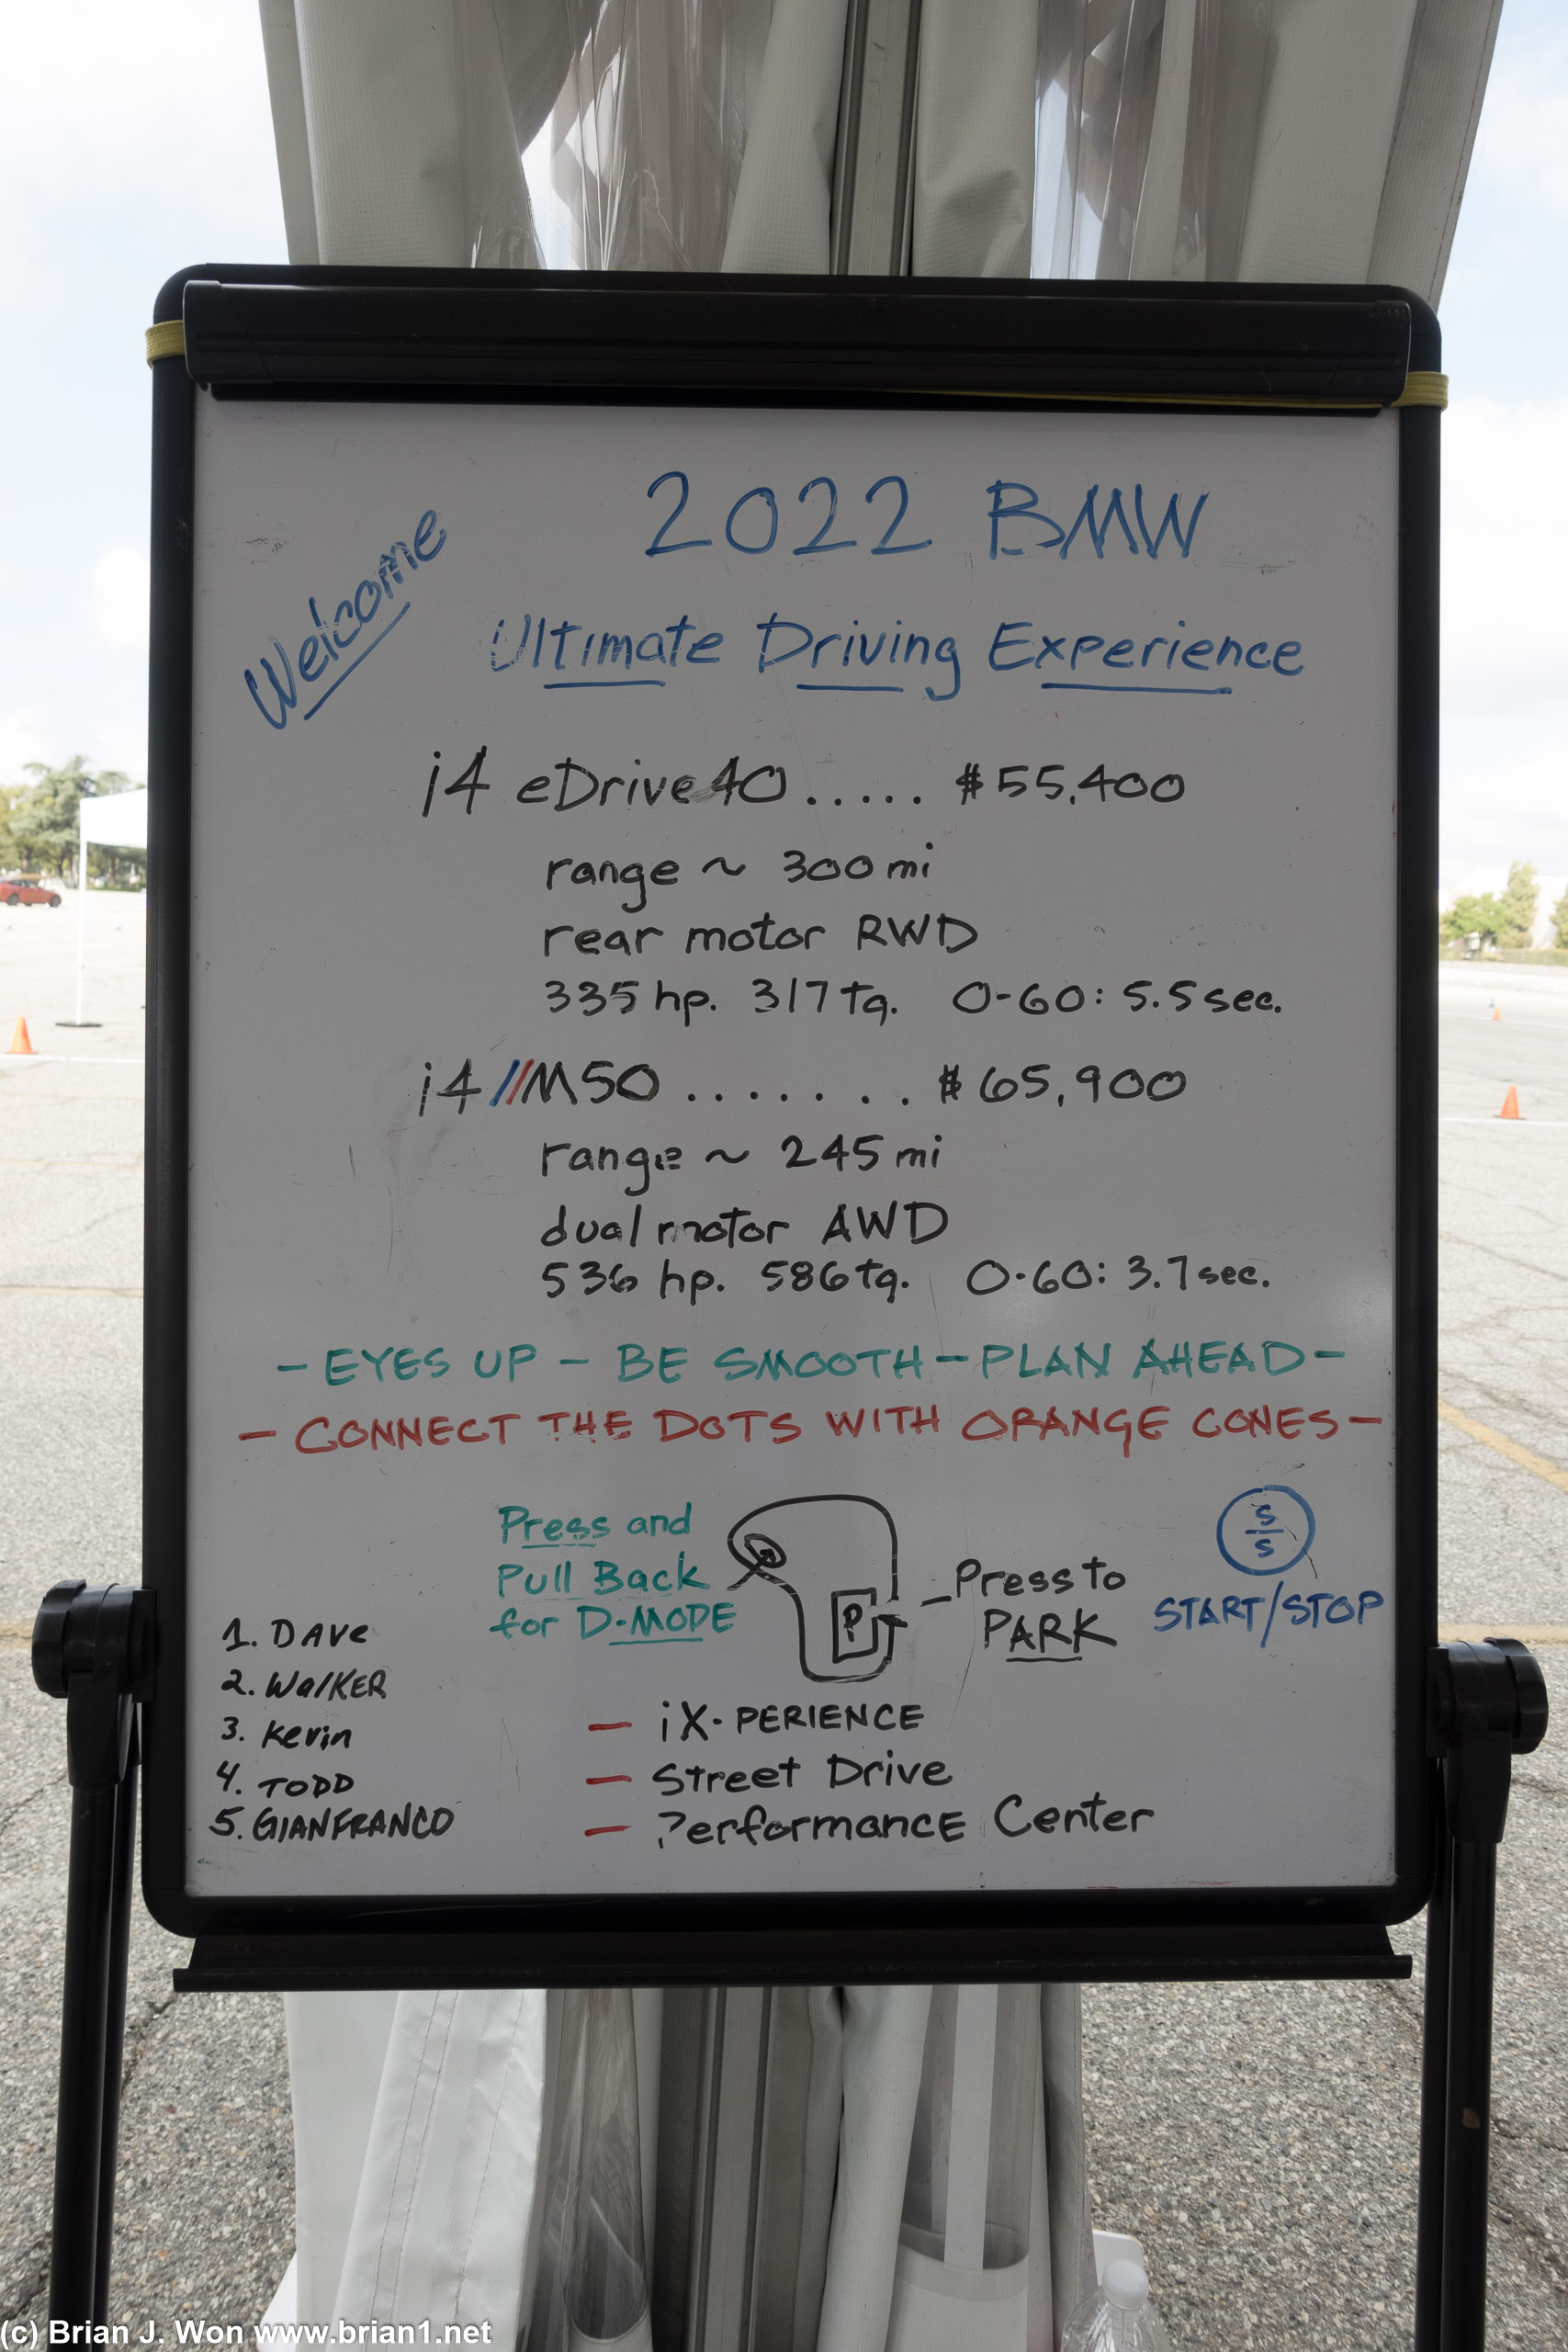 Welcome
2022 BMW
Ultimate Driving Experience
i4 eDrive40 ..... $55,400
range ~ 300 mi
rear motor RWD
335 hp. 317 tq. 0-60: 5.5 sec.
i4 //M50 ........ $65,900
range ~ 245 mi
dual motor AWD
536 hp. 586 tq. 0-60: 3.7 sec.
- EYES UP - BE SMOOTH - PLAN AHEAD -
- CONNECT THE DOTS WITH ORANGE CONES -
Press and
Pull Back
for D-MODE
P
Press to
PARK
S/S
START/STOP
1. DAVe
2. WalKER
3. Kevin
4. TODD
5. GIANFRANCO
- iX-PERIENCE
- Street Drive
- PerformancE Center
(c) Brian J. Won www.brian1.net